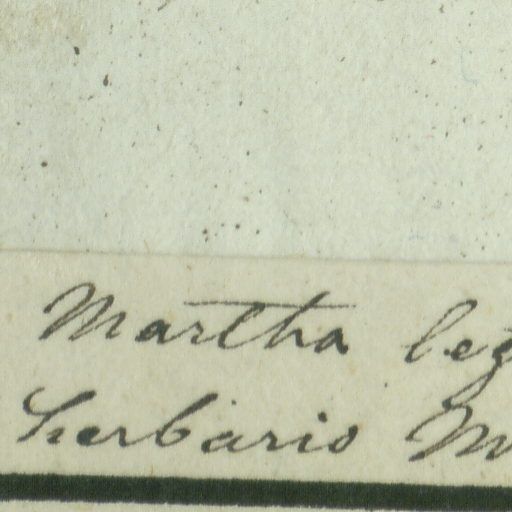 Martha leg
herbario M